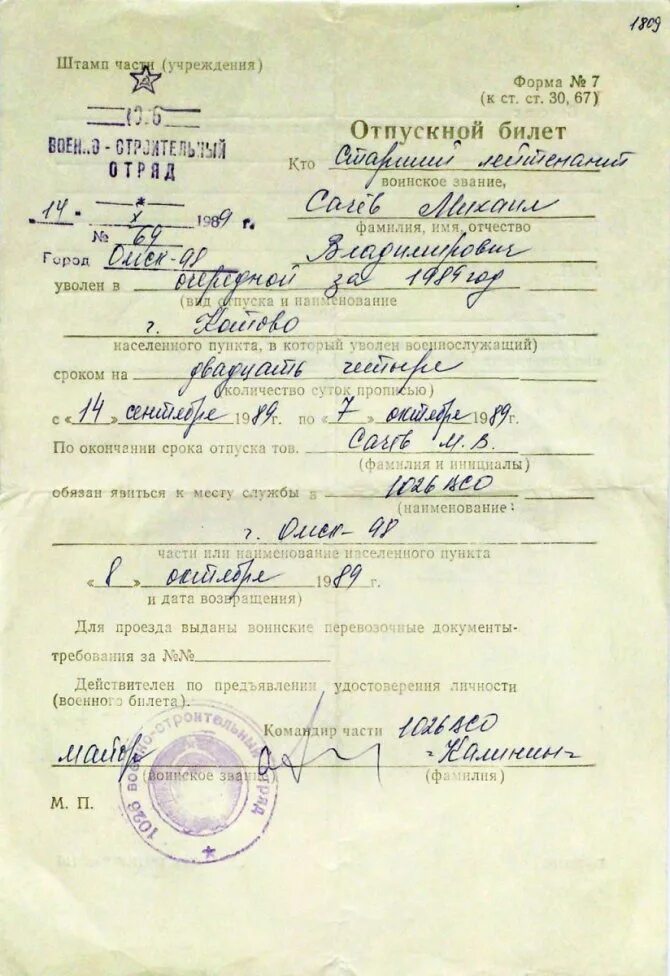 1809
Штамп части (учреждения)
Форма № 7
(к ст. ст. 30, 67)
1026
ВОЕННО-СТРОИТЕЛЬНЫЙ
ОТРЯД
Отпускной билет
Кто Старший лейтенант
воинское звание,
14 X 1989 г.
Сачёв Михаил
фамилия, имя, отчество
№ 69
Владимирович
Город Омск-98
уволен в очередной за 1989 год
(вид отпуска и наименование
г. Котово
населенного пункта, в который уволен военнослужащий)
сроком на двадцать четыре
(количество суток прописью)
с «14» сентября 1989г. по «7» октября 1989г.
По окончании срока отпуска тов. Сачёв М.В.
(фамилия и инициалы)
обязан явиться к месту службы в 1026 ВСО
(наименование
г. Омск-98
части или наименование населенного пункта
«8» октября 1989 г.
и дата возвращения)
Для проезда выданы воинские перевозочные документы-
требования за №№
Действителен по предъявлении удостоверения личности
(военного билета).
Командир части 1026 ВСО
майор Калинин
(воинское звание) (фамилия)
М. П.
1026 военно-строительный отряд